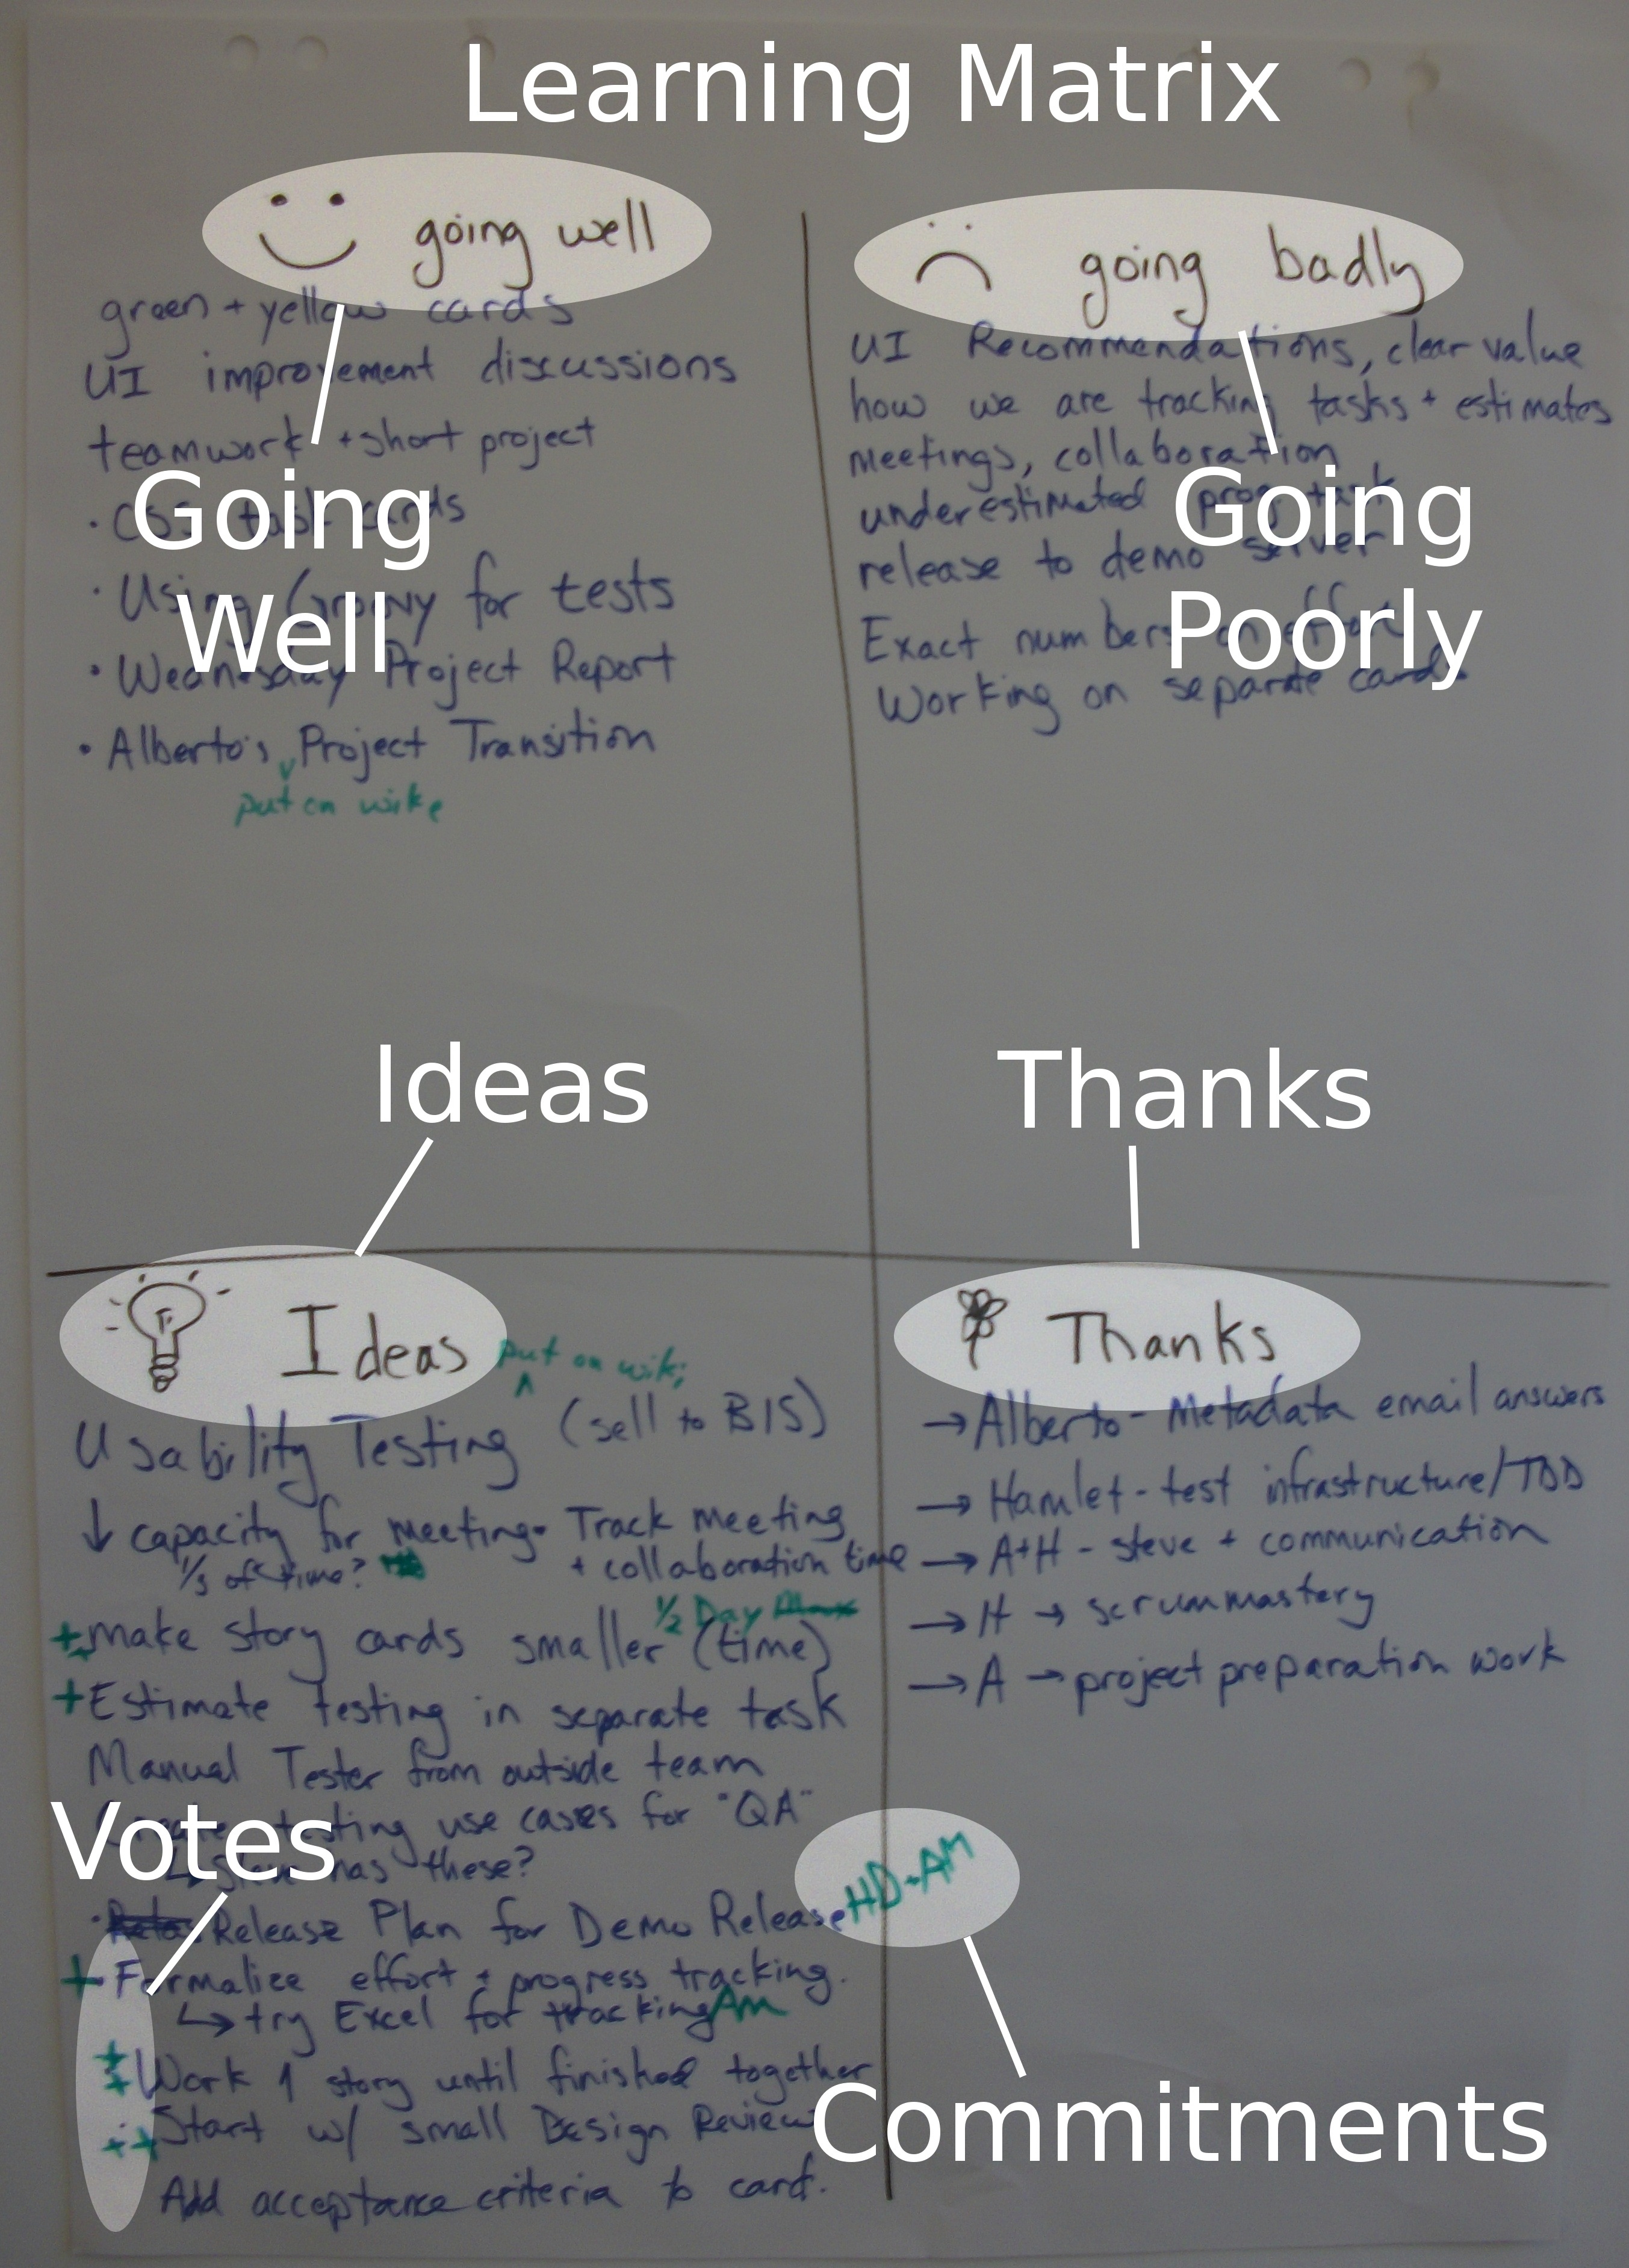 Learning Matrix
going well
green + yellow cards
UI improvement discussions
teamwork + short project
Going
Well
· CSS task cards
· Using Groovy for tests
· Wednesday Project Report
· Alberto's Project Transition
put on wike
going badly
UI Recommendations, clear value
how we are tracking tasks + estimates
meetings, collaboration
underestimated prog task
release to demo server
Exact numbers on effort
Working on separate cards
Going
Poorly
Ideas
Ideas
put on wiki
Usability Testing (sell to BIS)
↓ capacity for meeting · Track meeting
1/3 of time? + collaboration time
1/2 Day Max
+ make story cards smaller (time)
+ Estimate testing in separate task
Manual Tester from outside team
Create testing use cases for "QA"
↳ Steve has these?
Votes
· Release Plan for Demo Release HD+AM
+ Formalize effort + progress tracking.
↳ try Excel for tracking AM
++ Work 1 story until finished together
++ Start w/ small Design Review
Add acceptance criteria to card.
Thanks
Thanks
→ Alberto - Metadata email answers
→ Hamlet - test infrastructure/TDD
→ A+H - steve + communication
→ H → scrummastery
→ A → project preparation work
Commitments